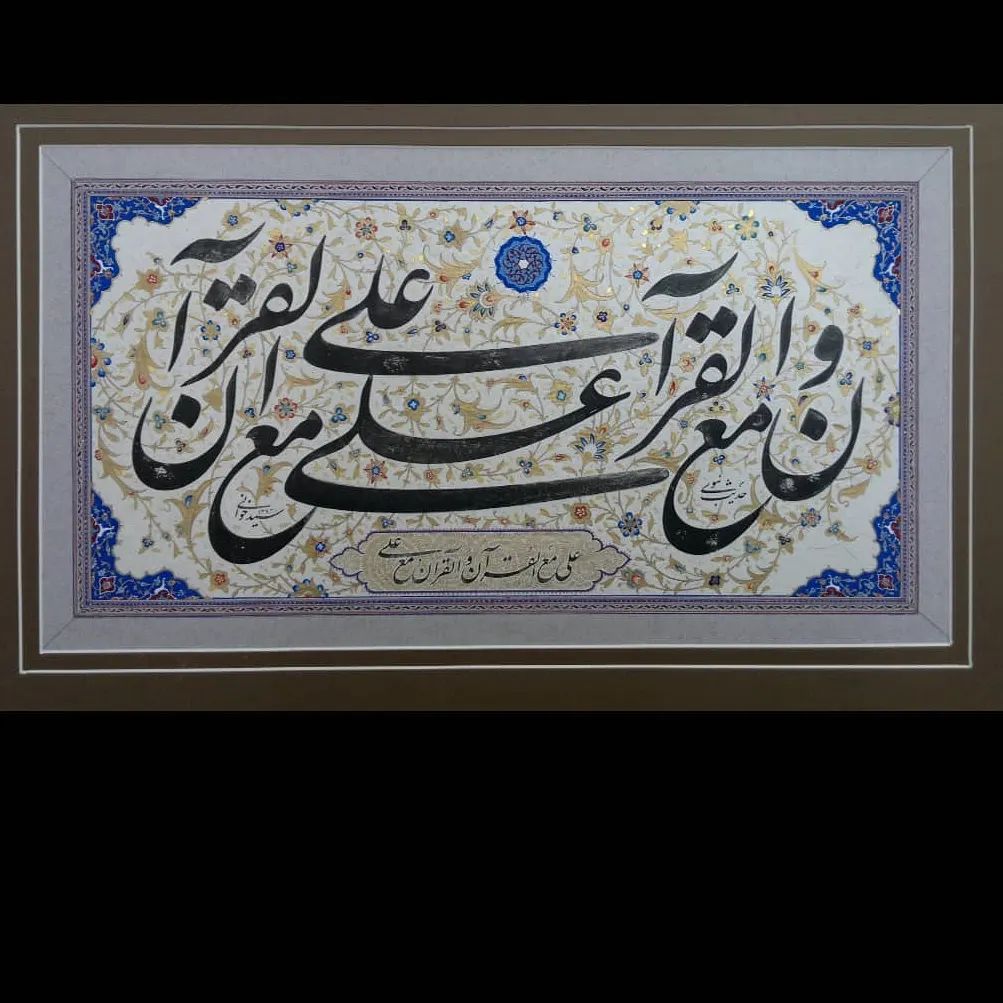 علی مع القرآن و القرآن مع علی
حدیث نبوی
علی مع القرآن و القرآن مع علی